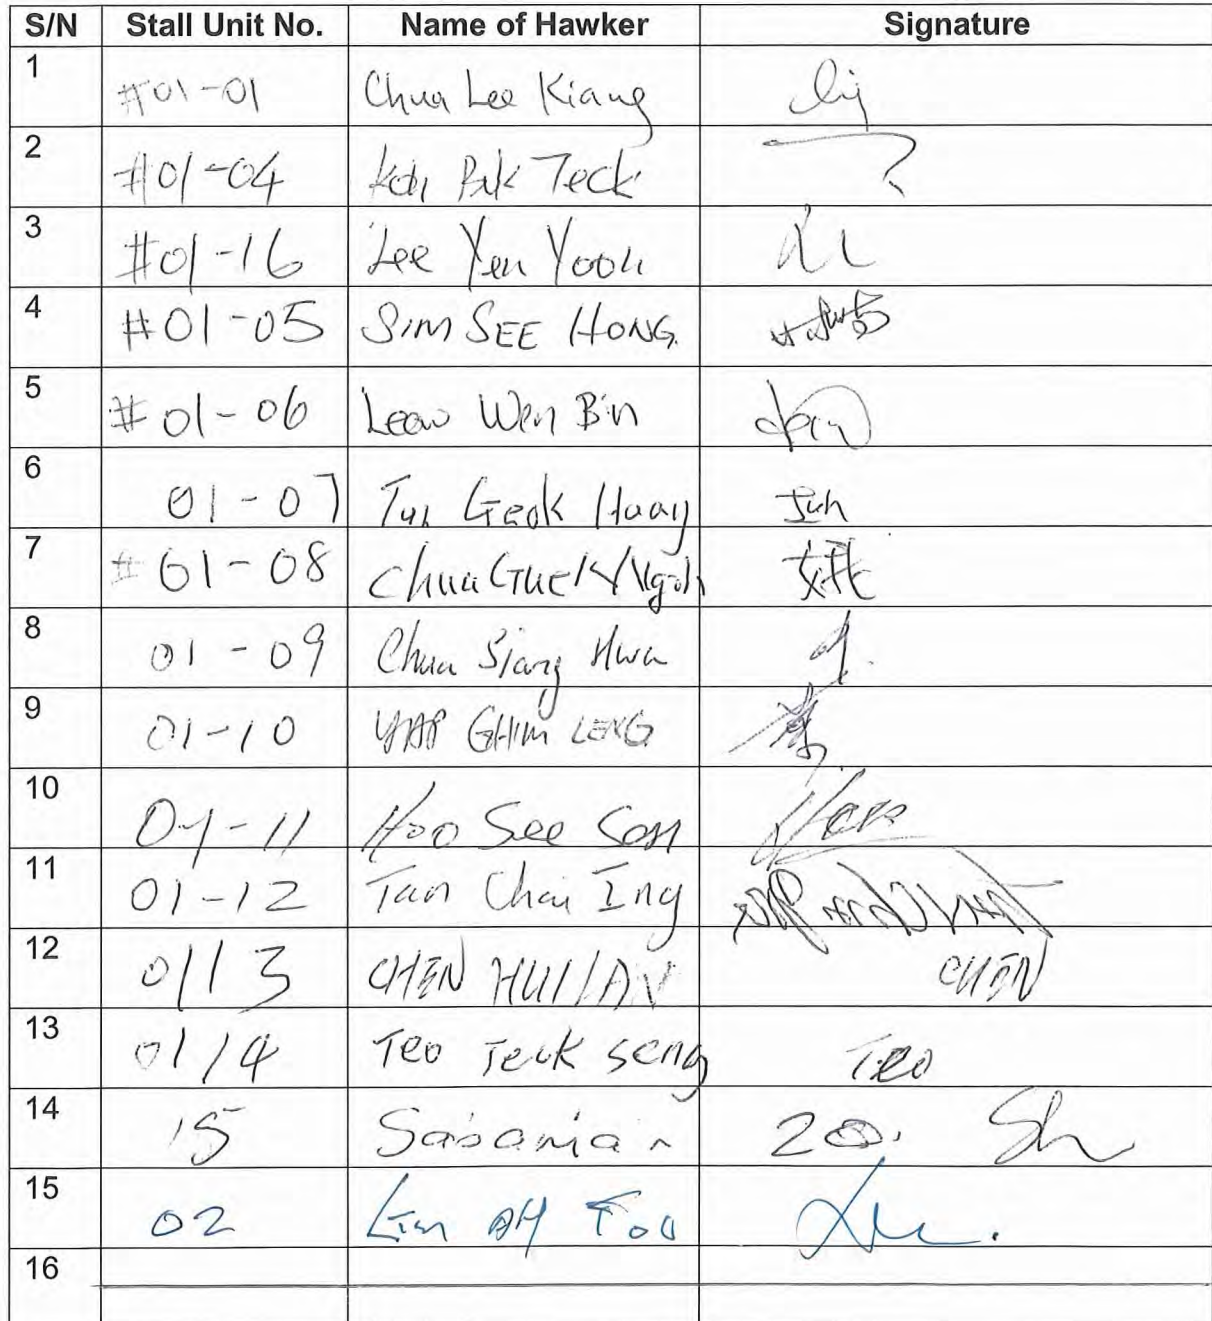 S/N Stall Unit No. Name of Hawker Signature
1 #01-01 Chua Lee Kiang
2 #01-04 Koh Pik Teck
3 #01-16 Lee Yen Yooh
4 #01-05 SIM SEE HONG
5 #01-06 Leow Wen Bin
6 01-07 Tan Geok Huay
7 #01-08 Chua Guek Ngoh
8 01-09 Chua Siang Hwa
9 01-10 YAP GHIM LENG
10 01-11 Hoo See Son
11 01-12 Tan Chai Ing
12 0113 CHEN HUILAN CHEN
13 0114 Teo Teck Seng TEO
14 15
15 02 Lim AH Foo
16